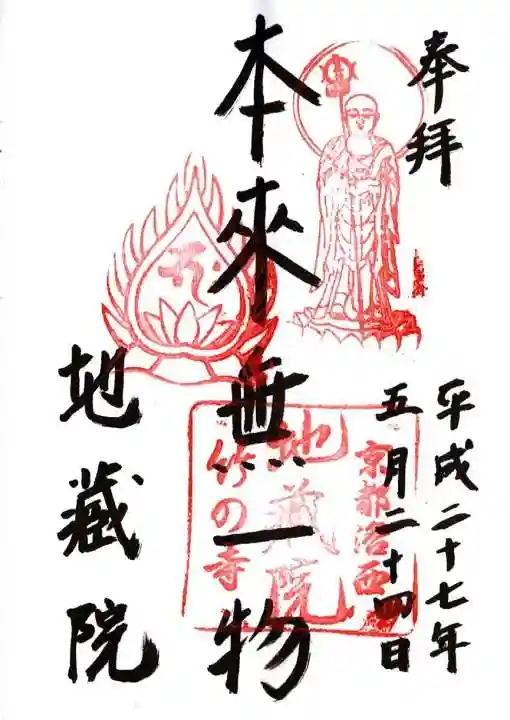 奉拝
平成二十七年
五月二十四日
本來無一物
地藏院
京都洛西
地藏院
竹の寺